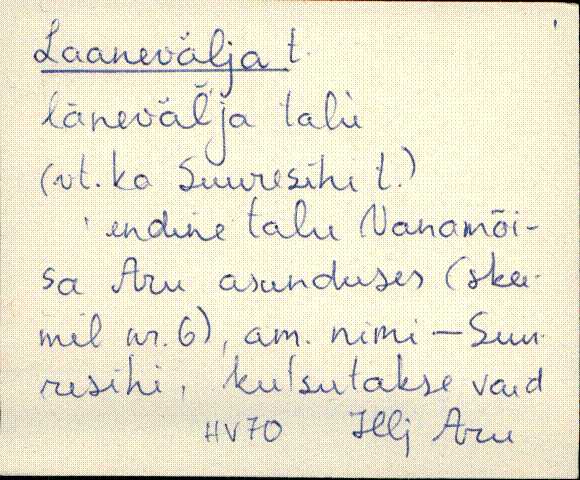 Laanevälja t.
lānevälja talù
(vt. ka Suuresihi t.)
endine talu Vanamõi-
sa Aru asunduses (skee-
mil nr. 6), am. nimi – Suu-
resihi, kutsutakse vaid
HV70 Illj Aru